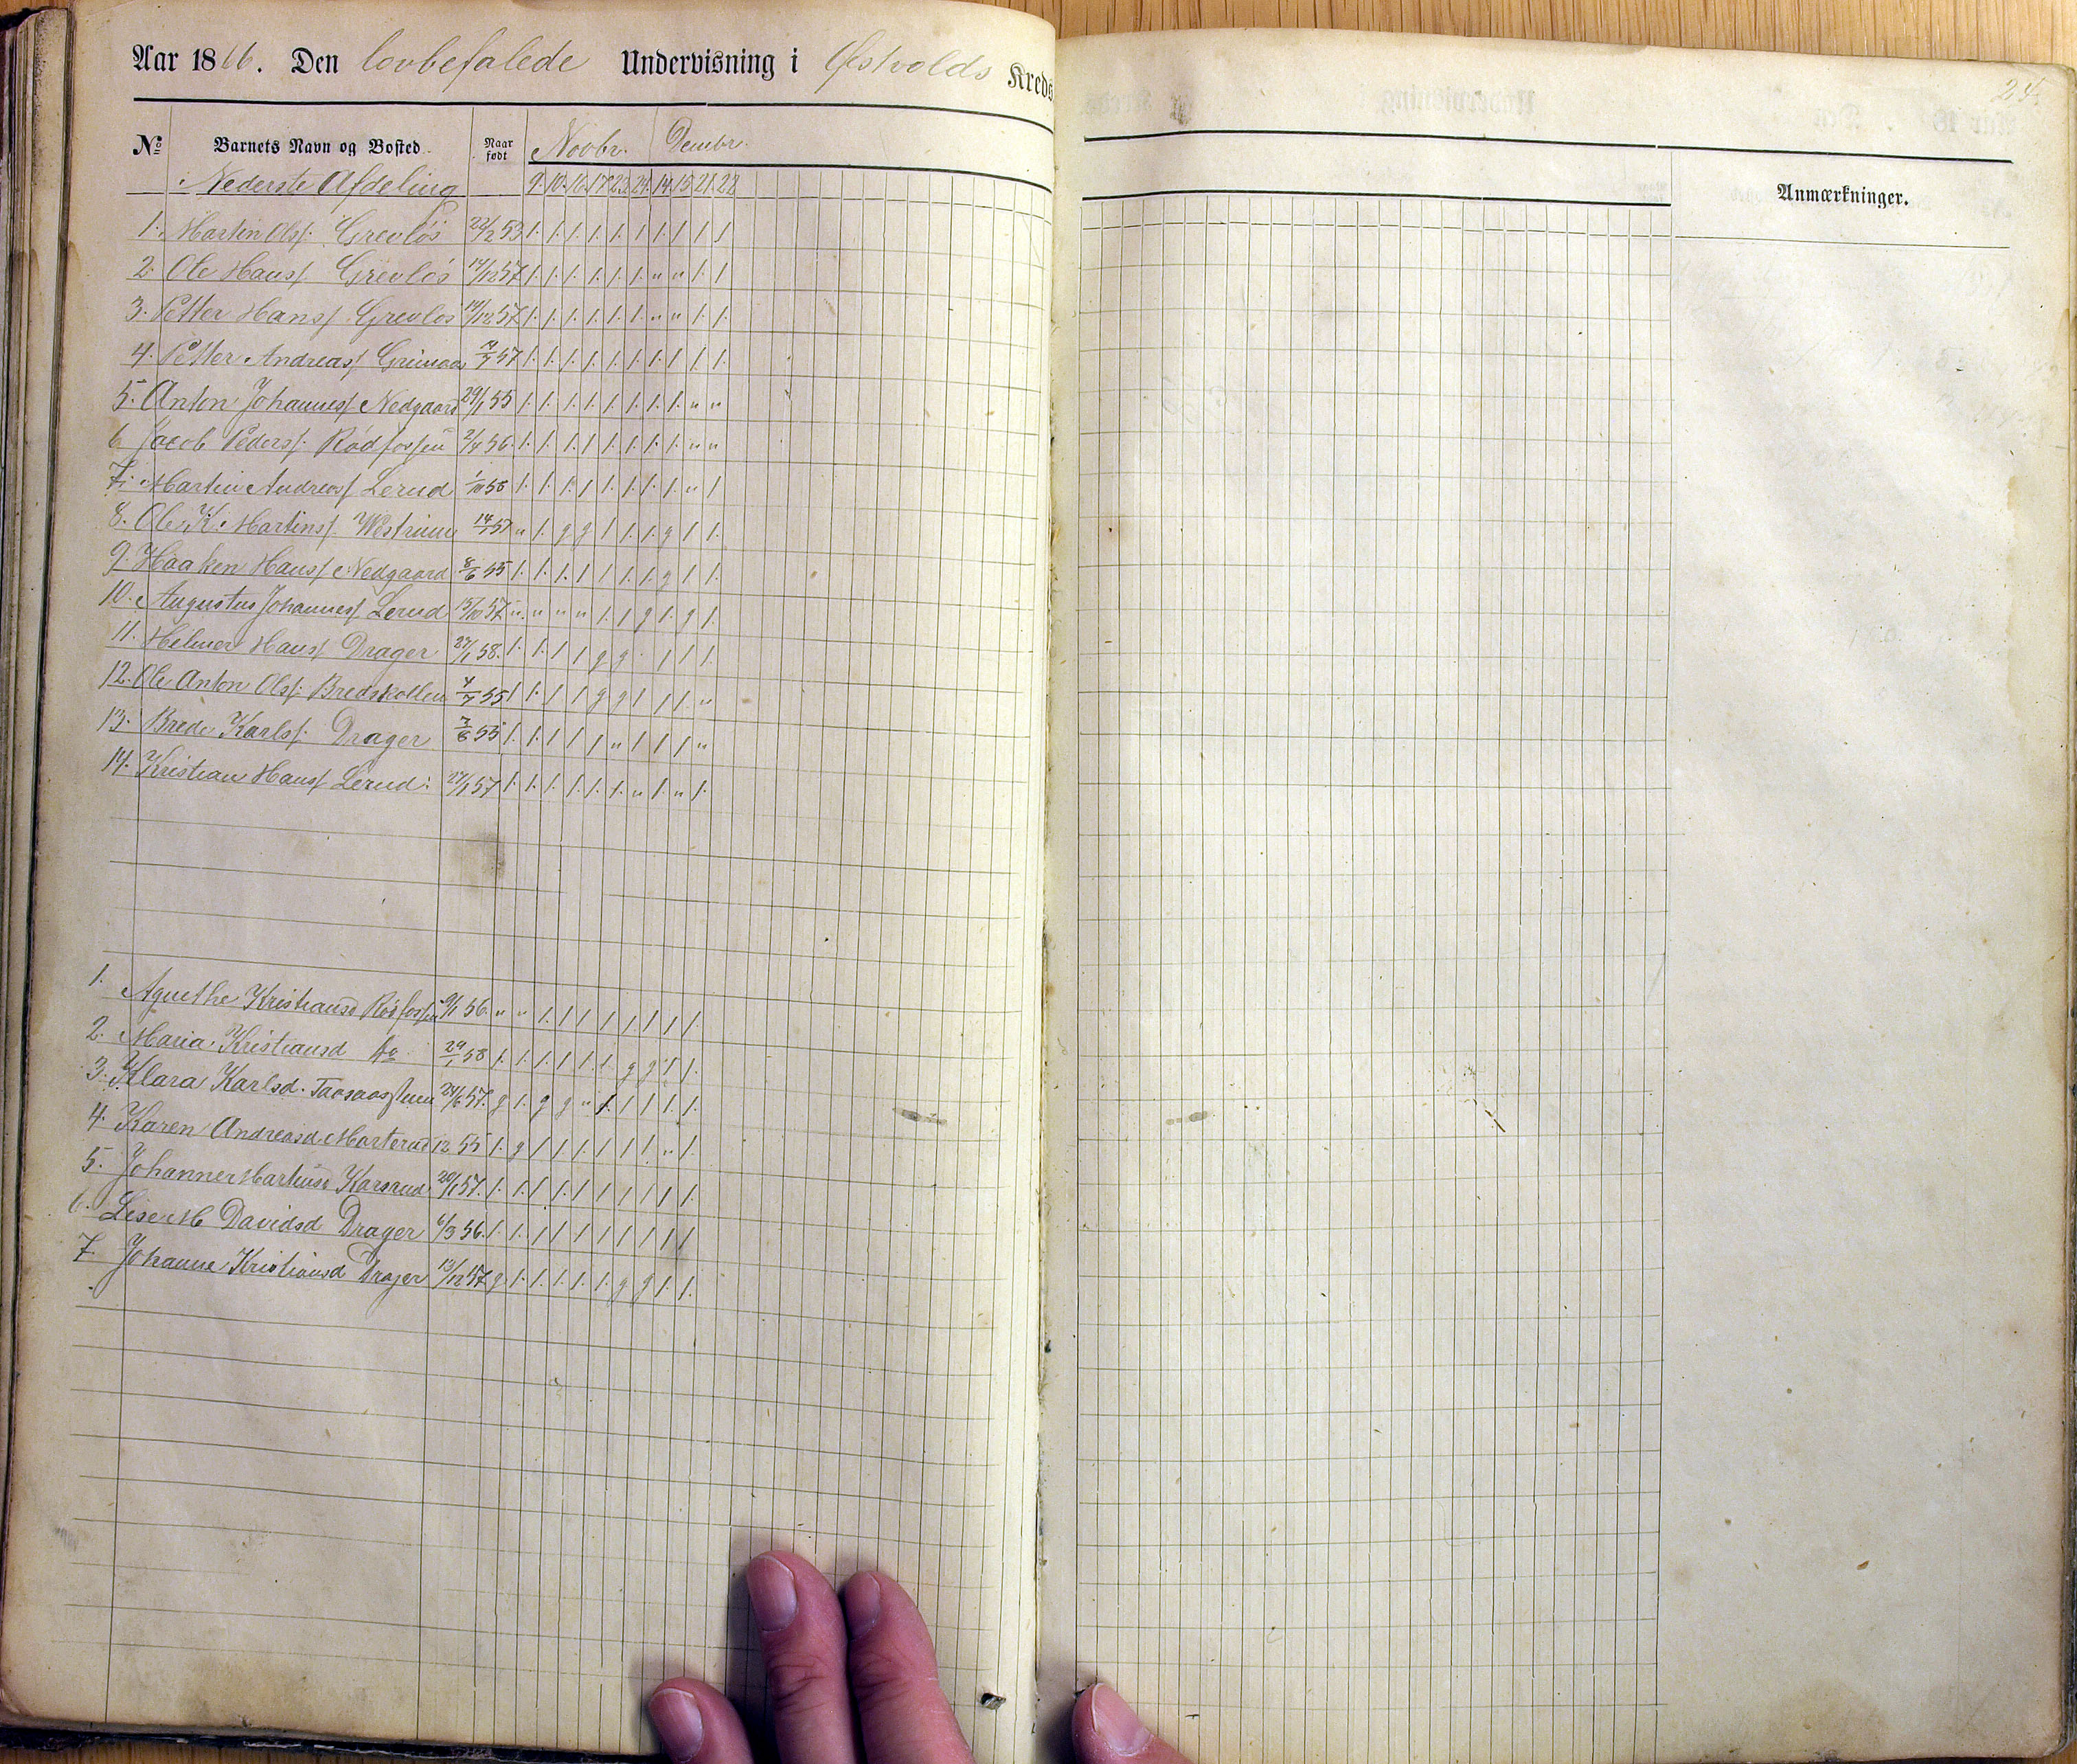 Aar 1866. Den lovbefalede Undervisning i Østvolds Kreds
24.
No Barnets Navn og Bosted. Naar født Novbr. Decmbr.
Anmærkninger.
Nederste Afdeling 9. 10. 16. 17. 23. 24. 14. 15. 21. 22
1. Martin Olss. Grevlös 22/2 53 1. 1. 1. 1. 1. 1 1. 1 1 1
2. Ole Hanss. Grevlös 14/12 57 1. 1. 1. 1. 1. 1. " " 1. 1
3. Petter Hanss. Grevlös 14/12 57 1. 1. 1. 1. 1. 1. " " 1. 1.
4. Petter Andreass. 57 1. 1. 1. 1. 1. 1. 1. 1 1. 1.
5. Anton Johanness. Nedgaard 29/1 55 1. 1. 1. 1. 1. 1. 1. 1. " "
6 Jacob Peders. Rödfossen 2/4 56. 1. 1. 1. 1 1. 1. 1. 1. " "
7. Martin Andreass. Lerud 1. 1. 1. 1 1. 1. 1. 1. " 1
8. Ole K. Martins. 57 " 1. g g 1 1. 1. g 1 1.
9. Haaken Hanss. Nedgaard 8/6 55 1. 1. 1. 1 1 1. 1. g 1 1.
10. Augustus Johanness. Lerud 15/10 57 " " " " 1. 1 g 1. g 1.
11. Helmer Hanss. Drager 27/1 58. 1. 1. 1 1 g g 1 1 1.
12. Ole Anton Olss. Bredskollen 4/7 55 1 1. 1 1 g g 1 1 1. "
13. Brede Karls. Drager 55 1. 1. 1 1 1 " 1 1 1 "
14. Kristian Hanss. Lerud. 27/1 57 1. 1. 1. 1. 1. 1. " 1. " 1.
1. Agnethe Kristiansd Rödfossen 56. " " 1. 1 1 1 1 1 1 1.
2. Maria Kristiansd do. 29/1 58 1. 1. 1. 1 1. 1. g g 1 1.
3. Klara Karlsd. 24/6 57. g 1. g g " 1. 1 1 1. 1.
4. Karen Andreasd. Morterud 12 55 1. g 1 1 1. 1 1 1. " 1.
5. Johanne Martinsd Karsrud. 20/1 57. 1. 1. 1 1. 1 1 1 1 1 1.
6. Lise M Davidsd Drager 6/3 56. 1. 1. 1 1 1 1 1 1 1 1
7. Johanne Kristiansd Drager 13/12 57 g 1. 1. 1. 1. 1. g g 1. 1.